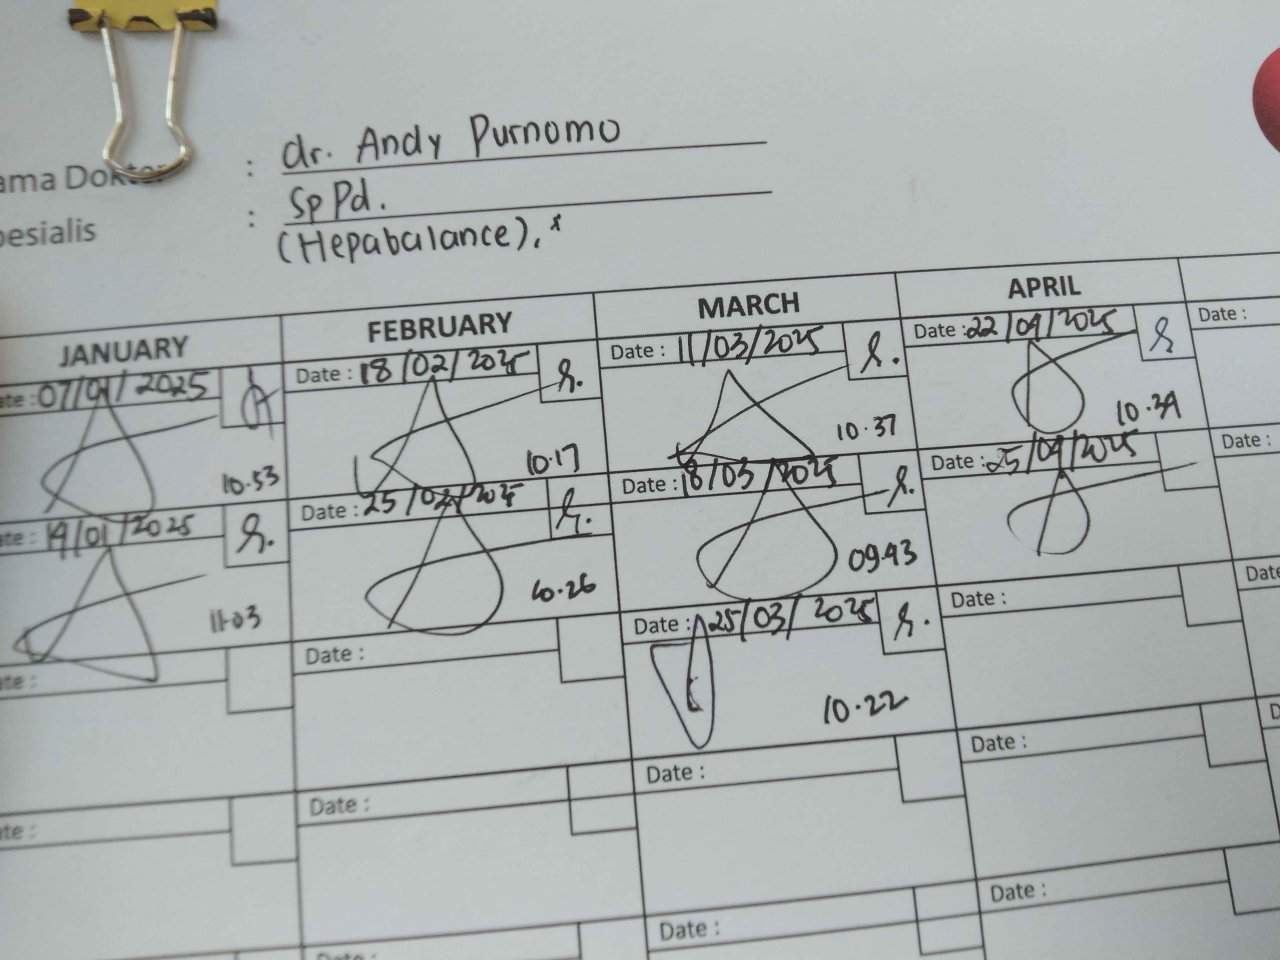 ama Dokter : dr. Andy Purnomo
pesialis : Sp Pd.
(Hepabalance).*
JANUARY FEBRUARY MARCH APRIL
ate : 07/01/2025 Date : 18/02/2025 Date : 11/03/2025 Date : 22/04/2025 Date :
10.53 10.17 10.37 10.34
ate : 14/01/2025 Date : 25/02/2025 Date : 18/03/2025 Date : 25/04/2025 Date :
11.03 10.26 09.43
ate : Date : Date : 25/03/2025 Date : Date
10.22
ate : Date : Date : Date : D
Date : Date :